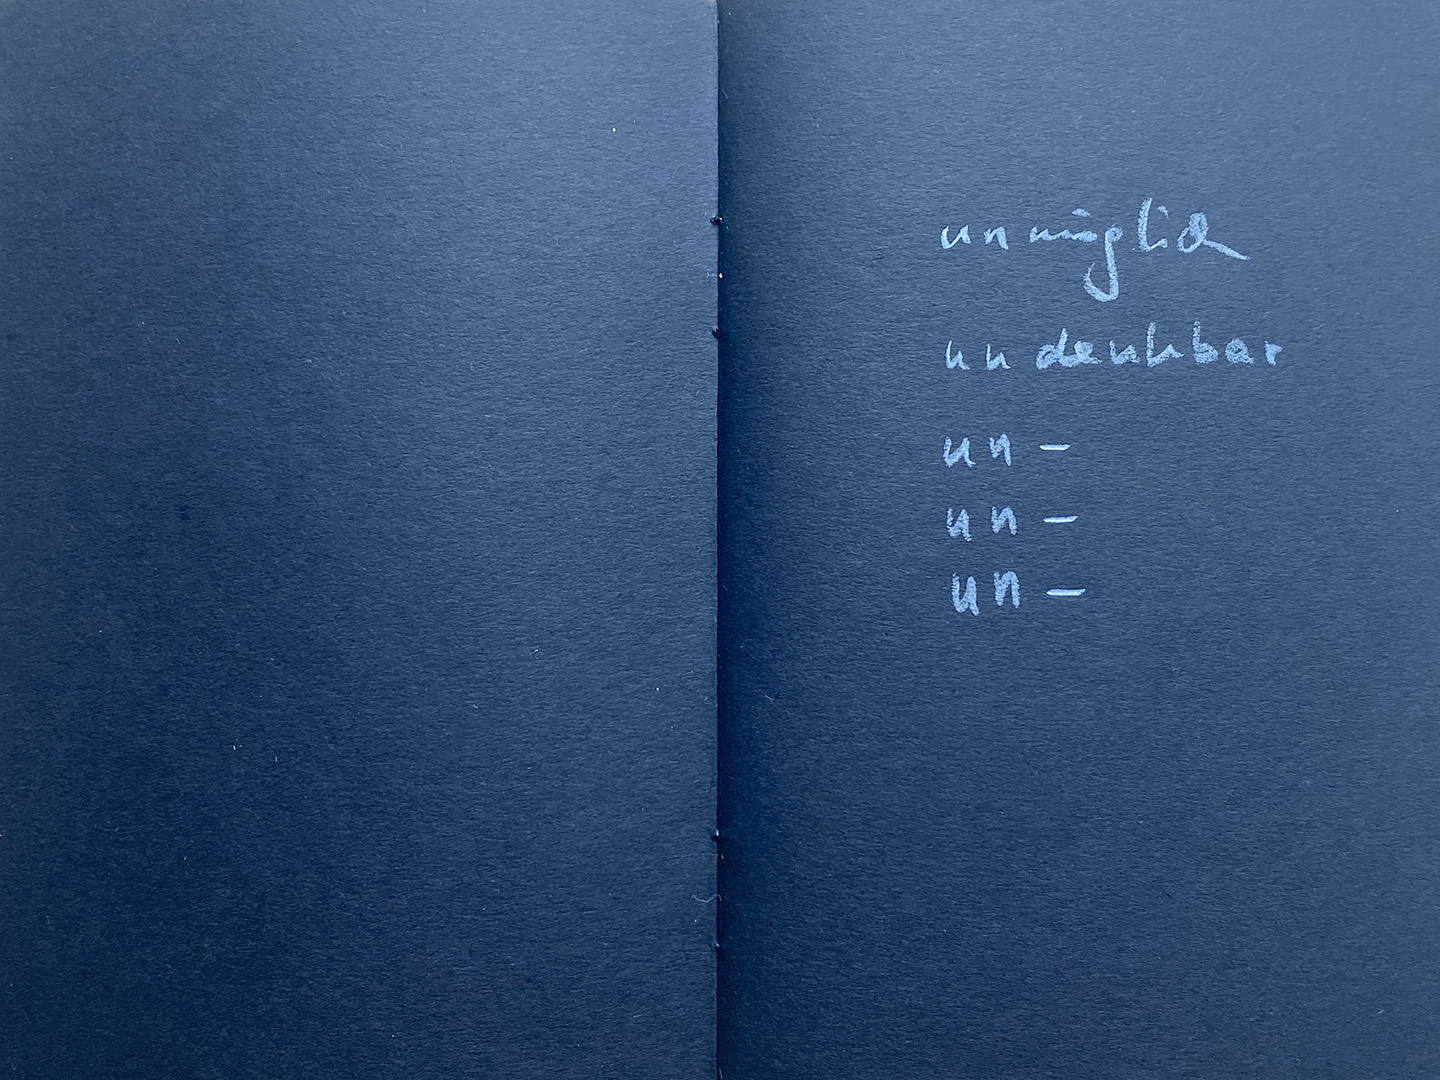 unmöglich
undenkbar
un –
un –
un –